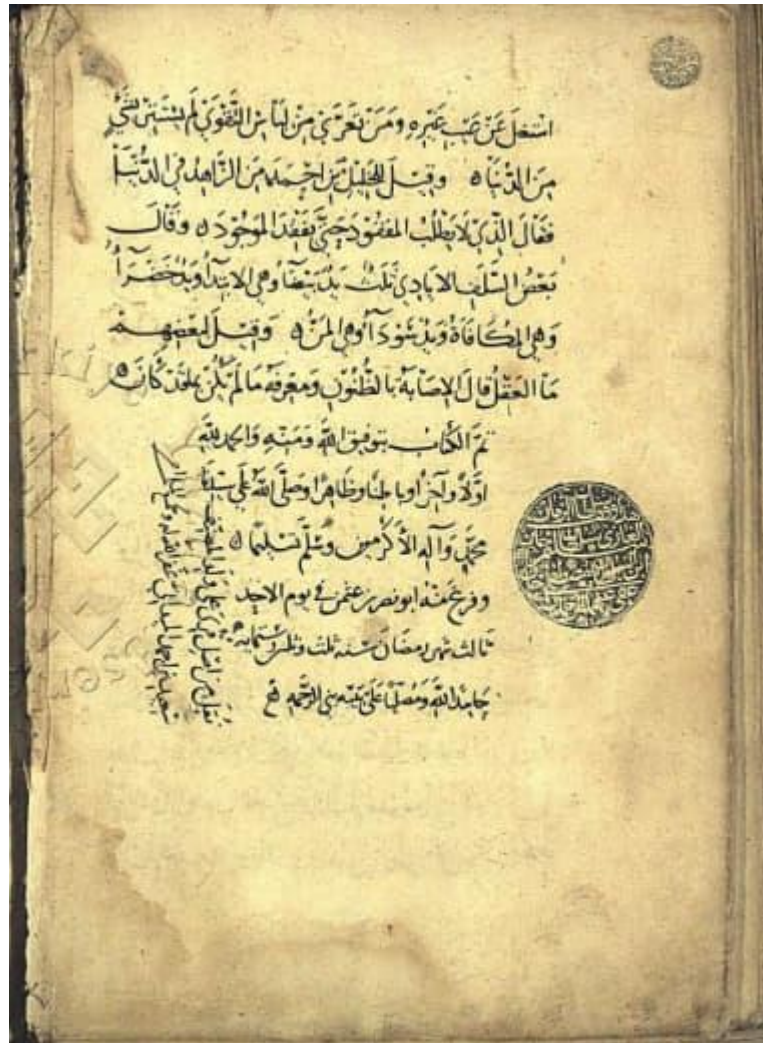 اشتغل عَنْ عَيْبِ غَيْرِهِ وَمَنْ تَعَرَّى مِنْ لِبَاسِ التَّقْوَى لَمْ يَسْتَتِرْ بِشَيْءٍ
مِنَ الدُّنْيَا ه وَقِيلَ لِلْخَلِيلِ بْنِ أَحْمَدَ مَنِ الزَّاهِدُ فِي الدُّنْيَا
فَقَالَ الَّذِي لَا يَطْلُبُ الْمَفْقُودَ حَتَّى يَفْقِدَ الْمَوْجُودَ ه وَقَالَ
بَعْضُ السَّلَفِ الأيادي ثلث يَدٌ بَيْضَآءُ وهي الابتدآءُ ويدٌ خَضْرَآءُ
وَهِيَ المكَافَاةُ وَيَدٌ سَوْدَآءُ وَهِيَ المَنُّ ه وَقِيلَ لِبَعْضِهِمْ
مَا العَقْلُ قالَ الإصَابَةُ بالظُّنُونِ وَمَعْرِفَةُ مَا لَمْ يَكُنْ بِمَا قَدْ كَانَ ه
تَمَّ الكِتَابُ بتوفيق اللَّهِ وَمَنِّهِ وَالحمدُ لِلَّهِ
اوّلًا وآخِرًا وباطنًا وظاهِرًا وصَلَّى اللَّهُ عَلَى سيّدنَا
مُحَمَّدٍ وَآلِهِ الأكْرَمِينَ وَسَلَّمَ تَسْلِيمًا ه
وفرغ منه ابو نصر بن عثمن في يوم الاحد
ثالث شهر رمضان سنه ثلث وثلثين وستمايه
حَامِدًا لِلَّهِ وَمُصَلِّيًا عَلَى نَبِيِّهِ نبي الرَّحْمَةِ
نقل من اصل قرئ على ولد المصنف
سعيد بن احمد الميداني غفر الله له